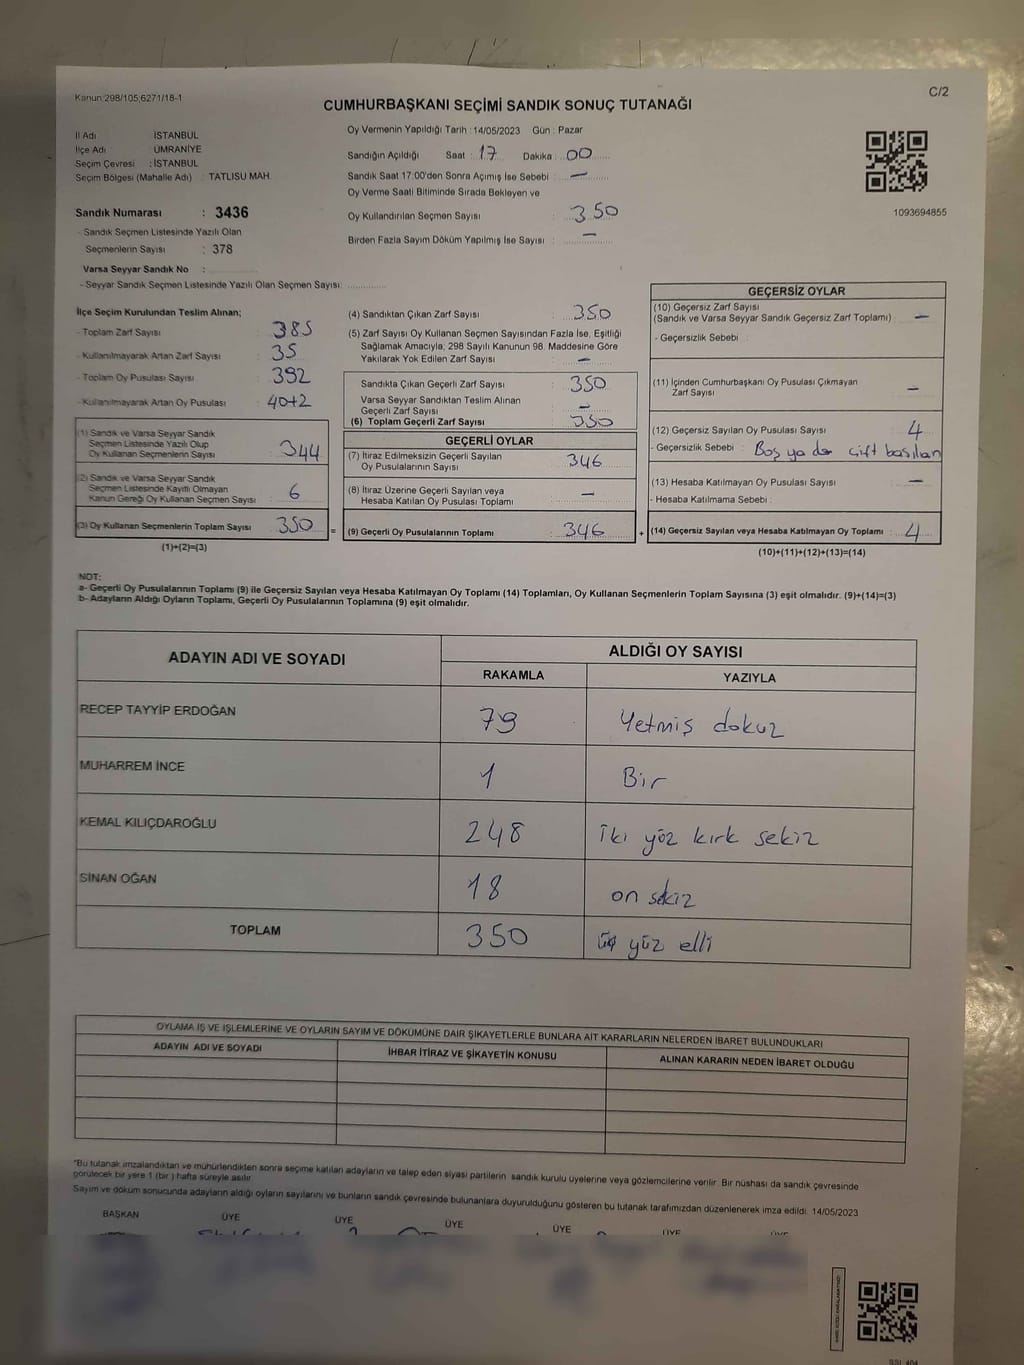 Kanun 298/105,6271/18-1
C/2
CUMHURBAŞKANI SEÇİMİ SANDIK SONUÇ TUTANAĞI
İl Adı : İSTANBUL
İlçe Adı : ÜMRANİYE
Seçim Çevresi : İSTANBUL
Seçim Bölgesi (Mahalle Adı) : TATLISU MAH.
Sandık Numarası : 3436
- Sandık Seçmen Listesinde Yazılı Olan
Seçmenlerin Sayısı : 378
Varsa Seyyar Sandık No :
- Seyyar Sandık Seçmen Listesinde Yazılı Olan Seçmen Sayısı:
Oy Vermenin Yapıldığı Tarih : 14/05/2023 Gün : Pazar
Sandığın Açıldığı Saat : 17 Dakika : 00
Sandık Saat 17:00'den Sonra Açımış İse Sebebi : —
Oy Verme Saati Bitiminde Sırada Bekleyen ve
Oy Kullandırılan Seçmen Sayısı : 350
Birden Fazla Sayım Döküm Yapılmış İse Sayısı : —
1093694855
İlçe Seçim Kurulundan Teslim Alınan;
- Toplam Zarf Sayısı : 385
- Kullanılmayarak Artan Zarf Sayısı : 35
- Toplam Oy Pusulası Sayısı : 392
- Kullanılmayarak Artan Oy Pusulası : 40+2
(1) Sandık ve Varsa Seyyar Sandık
Seçmen Listesinde Yazılı Olup
Oy Kullanan Seçmenlerin Sayısı : 344
(2) Sandık ve Varsa Seyyar Sandık
Seçmen Listesinde Kayıtlı Olmayan
Kanun Gereği Oy Kullanan Seçmen Sayısı : 6
(3) Oy Kullanan Seçmenlerin Toplam Sayısı : 350
(1)+(2)=(3)
(4) Sandıktan Çıkan Zarf Sayısı : 350
(5) Zarf Sayısı Oy Kullanan Seçmen Sayısından Fazla İse, Eşitliği
Sağlamak Amacıyla; 298 Sayılı Kanunun 98. Maddesine Göre
Yakılarak Yok Edilen Zarf Sayısı : —
Sandıkta Çıkan Geçerli Zarf Sayısı : 350
Varsa Seyyar Sandıktan Teslim Alınan
Geçerli Zarf Sayısı : —
(6) Toplam Geçerli Zarf Sayısı : 350
GEÇERLİ OYLAR
(7) İtiraz Edilmeksizin Geçerli Sayılan
Oy Pusulalarının Sayısı : 346
(8) İtiraz Üzerine Geçerli Sayılan veya
Hesaba Katılan Oy Pusulası Toplamı : —
= (9) Geçerli Oy Pusulalarının Toplamı : 346
GEÇERSİZ OYLAR
(10) Geçersiz Zarf Sayısı
(Sandık ve Varsa Seyyar Sandık Geçersiz Zarf Toplamı) : —
- Geçersizlik Sebebi :
(11) İçinden Cumhurbaşkanı Oy Pusulası Çıkmayan
Zarf Sayısı : —
(12) Geçersiz Sayılan Oy Pusulası Sayısı : 4
- Geçersizlik Sebebi : Boş ya da çift basılan
(13) Hesaba Katılmayan Oy Pusulası Sayısı : —
- Hesaba Katılmama Sebebi :
+ (14) Geçersiz Sayılan veya Hesaba Katılmayan Oy Toplamı : 4
(10)+(11)+(12)+(13)=(14)
NOT:
a- Geçerli Oy Pusulalarının Toplamı (9) ile Geçersiz Sayılan veya Hesaba Katılmayan Oy Toplamı (14) Toplamları, Oy Kullanan Seçmenlerin Toplam Sayısına (3) eşit olmalıdır. (9)+(14)=(3)
b- Adayların Aldığı Oyların Toplamı, Geçerli Oy Pusulalarının Toplamına (9) eşit olmalıdır.
ADAYIN ADI VE SOYADI
ALDIĞI OY SAYISI
RAKAMLA YAZIYLA
RECEP TAYYİP ERDOĞAN 79 Yetmiş dokuz
MUHARREM İNCE 1 Bir
KEMAL KILIÇDAROĞLU 248 İki yüz kırk sekiz
SİNAN OĞAN 18 on sekiz
TOPLAM 350 üç yüz elli
OYLAMA İŞ VE İŞLEMLERİNE VE OYLARIN SAYIM VE DÖKÜMÜNE DAİR ŞİKAYETLERLE BUNLARA AİT KARARLARIN NELERDEN İBARET BULUNDUKLARI
ADAYIN ADI VE SOYADI İHBAR İTİRAZ VE ŞİKAYETİN KONUSU ALINAN KARARIN NEDEN İBARET OLDUĞU
"Bu tutanak imzalandıktan ve mühürlendikten sonra seçime katılan adayların ve talep eden siyasi partilerin sandık kurulu üyelerine veya gözlemcilerine verilir. Bir nüshası da sandık çevresinde
görülecek bir yere 1 (bir ) hafta süreyle asılır.
Sayım ve döküm sonucunda adayların aldığı oyların sayılarını ve bunların sandık çevresinde bulunanlara duyurulduğunu gösteren bu tutanak tarafımızdan düzenlenerek imza edildi. 14/05/2023
BAŞKAN ÜYE ÜYE ÜYE ÜYE ÜYE ÜYE